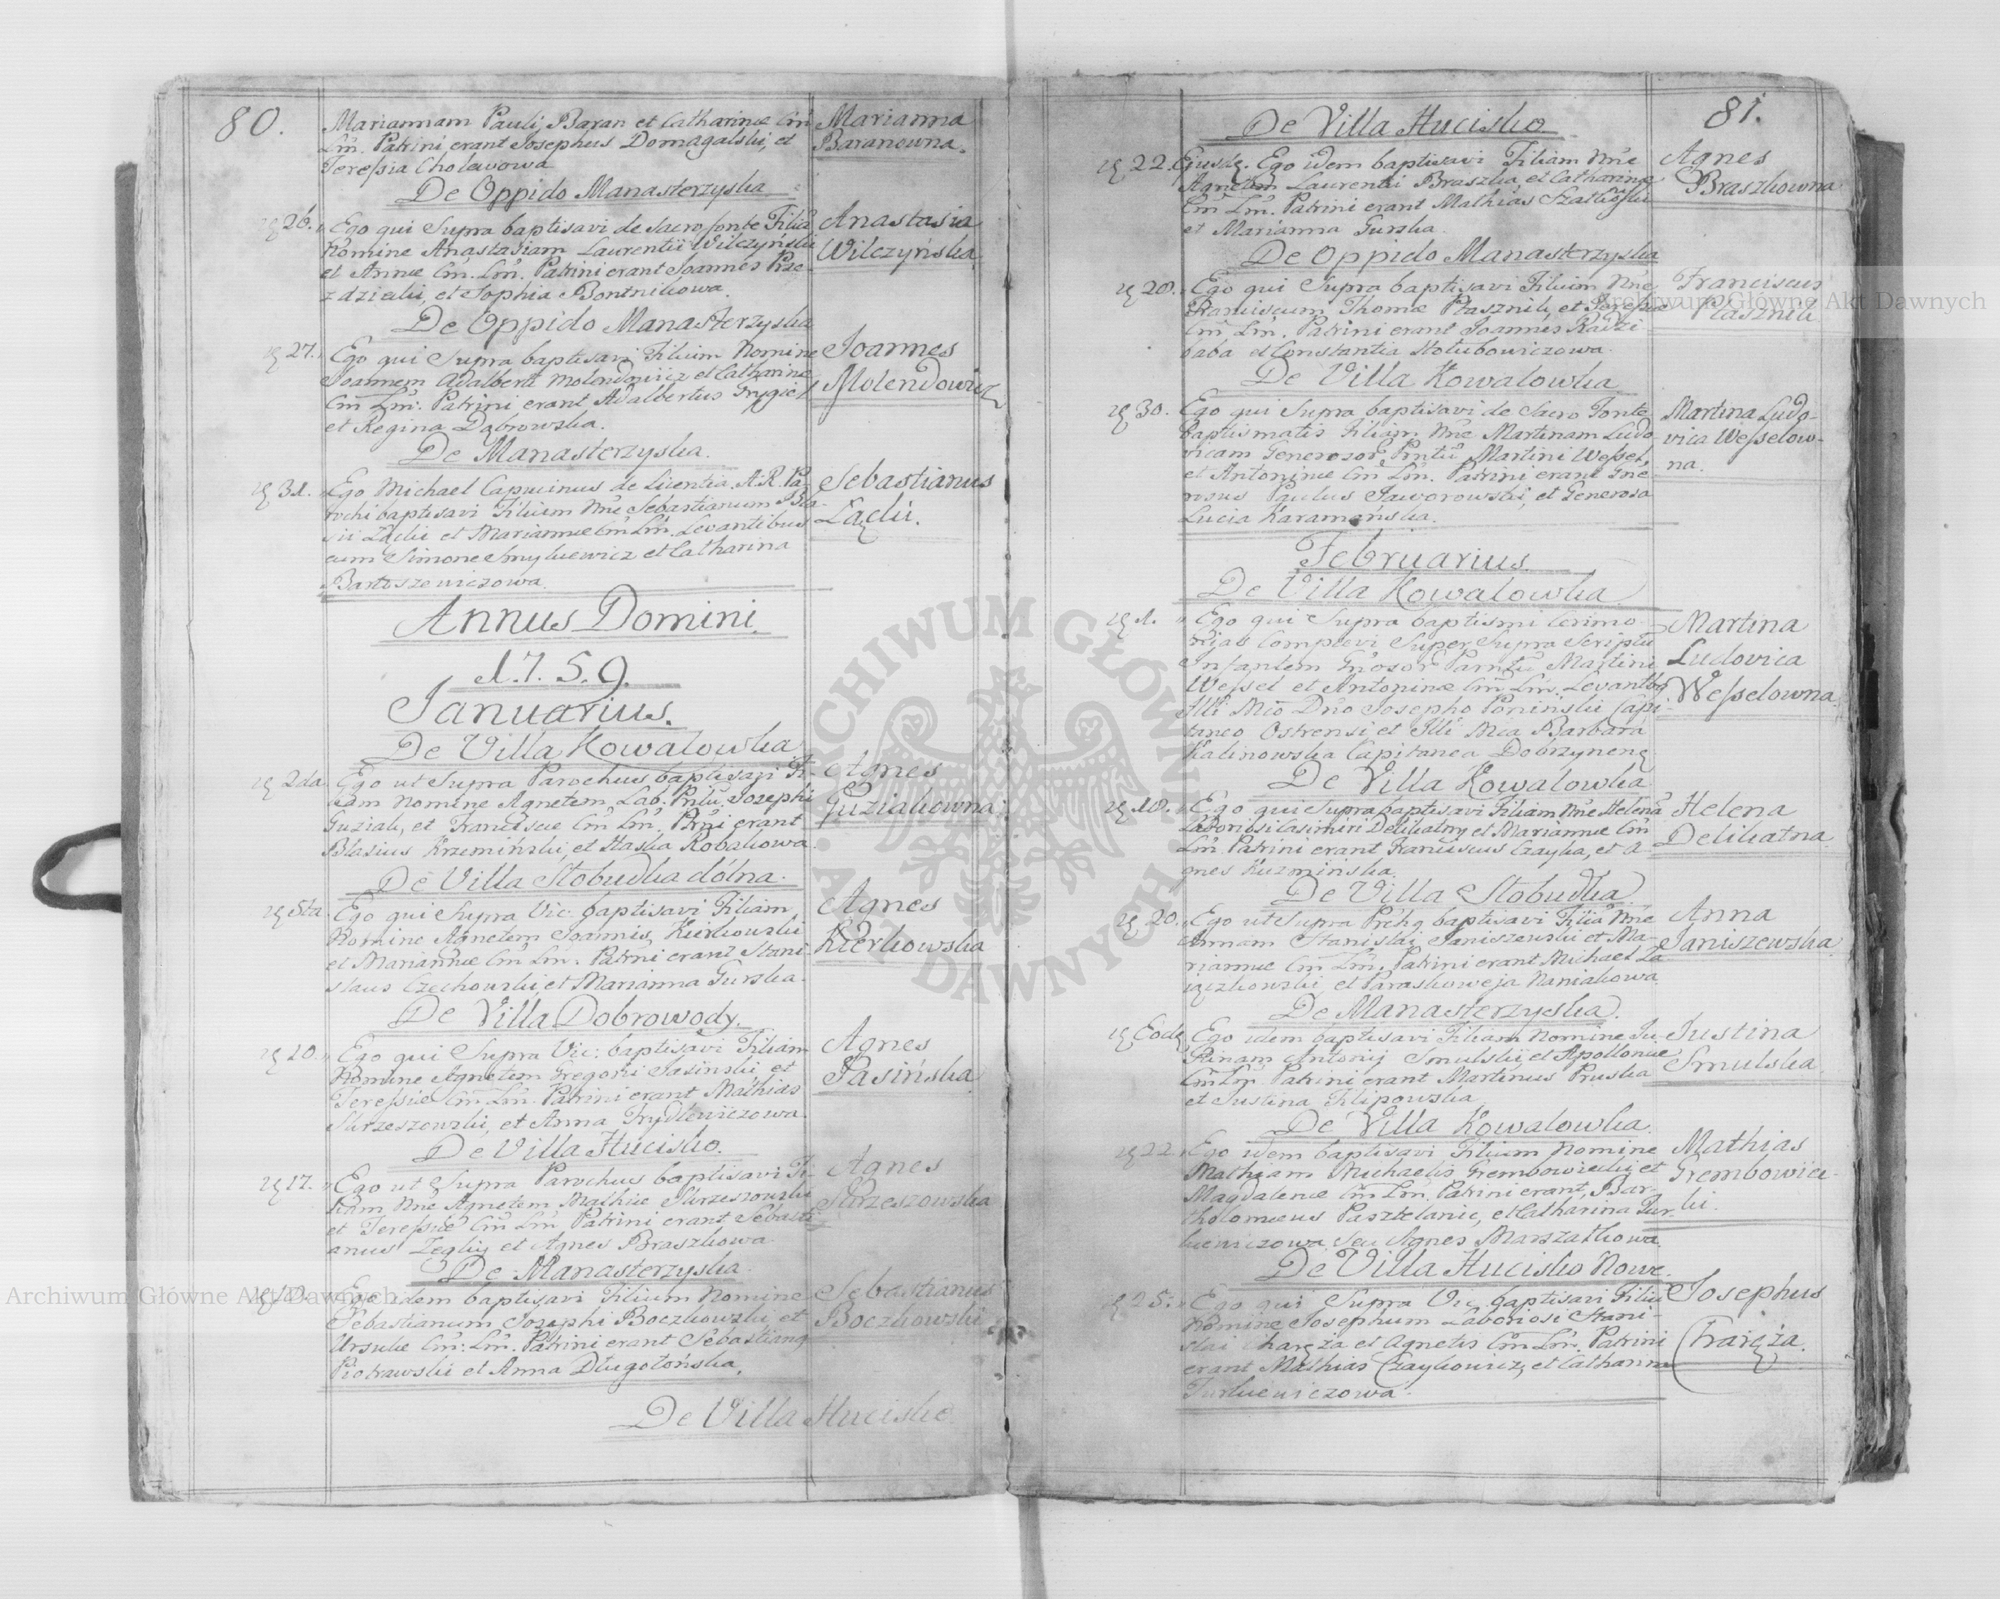 80.
Mariannam Pauli Baran et Catharinæ Cm̃
Lm̃. Patrini erant Josephus Domagalski, et
Teressia Cholewowa
Marianna
Baranowna.
De Oppido Manasterzyska
26. Ego qui Supra baptisavi de Sacro fonte Filiã
Nomine Anastasiam Laurentii Wilczyński
et Annæ Cm̃. Lm̃. Patrini erant Joannes
et Sophia Bontnikowa.
Anastasia
Wilczyńska
De Oppido Manasterzyska
27. Ego qui Supra baptisavi Filium Nomine
Joannem Adalberti et Catharinæ
Cm̃ Lm̃. Patrini erant Adalbertus Grygiel
et Regina Dąbrowska.
Joannes
Molendowicz
De Manasterzyska.
31. Ego Michael Capucinus de Licentia A. R. Pa-
rochi baptisavi Filium Nñe Sebastianum Bla-
sii Łącki et Mariannæ Cm̃ Lm̃. Levantibus
eum Simone et Catharina
Bartoszewiczowa.
Sebastianus
Łącki.
Annus Domini
1.7.5.9.
Januarius.
De Villa Kowalowka
2da. Ego ut Supra Parochus baptisavi Fi-
Nomine Agnetem, Lab. Josephi
Guziak, et Franciscæ Cm̃ Lm̃. erant
Blasius Krzemiński et Kaska Robakowa.
Agnes
Guziakowna
De Villa Słobudka dólna.
5ta. Ego qui Supra Vic: baptisavi Filiam
Nomine Agnetem Joannis Kierkowski
et Mariannæ Cm̃ Lm̃. Patrini erant Stani-
slaus Czechowski, et Marianna Gurska.
Agnes
Kierkowska
De Villa Dobrowody.
10. Ego qui Supra Vic: baptisavi Filiam
Nomine Agnetem Gregorii Jasinski, et
Teressiæ Cm̃ Lm̃. Patrini erant Mathias
Skrzeszowski, et Anna Frydlewiczowa.
Agnes
Jasińska
De Villa Hucisko.
17. Ego ut Supra Parochus baptisavi Fi-
liam Nñe Agnetem Mathiæ Skrzeszowski
et Teressiæ Cm̃ Lm̃ Patrini erant Sebasti-
anus et Agnes Braszkowa.
Agnes
Skrzeszowska
De Manasterzyska.
Ego idem baptisavi Filium Nomine
Sebastianum Josephi Boczkowski, et
Ursulæ Cm̃. Lm̃. Patrini erant Sebastianq
Piotrawski et Anna Długołońska.
Sebastianus
Boczkowski
De Villa Hucisko.
81.
De Villa Hucisko
22. Ejusdę. Ego idem baptisavi Filiam Nñe
Agnetem Laurentii Braszka et Catharinæ
Cm̃ Lm̃. Patrini erant Mathias
et Marianna Gurska.
Agnes
Braszkowna
De Oppido Manasterzyska
Ego qui Supra baptisavi Filium Nñe
Franciscum Thomæ Ptasznik, et Teressiæ
Cm̃ Lm̃. Patrini erant Joannes Radzi-
baba et Constantia Hołubowiczowa.
Franciscus
Ptasznik
De Villa Kowalowka
30. Ego qui Supra baptisavi de Sacro Fonte
baptismatis Filiam Nñe Martinam Ludo-
vicam Generosor. Martini Wessel,
et Antoninæ Cm̃ Lm̃. Patrini erant Gñe-
rosus Paulus Jaworowski, et Generosa
Lucia Karamańska.
Martina Ludo-
vica Wesselow-
na.
Februarius.
De Villa Kowalowka
1. Ego qui Supra baptismi Cerimo-
nias Complevi Super Supra Scriptã
Infantem Martini
Wessel et Antoninæ Cm̃ Lm̃. Levantbq
Illi Mio Dño Josepho Poninski Capi-
taneo Ostrensi et Illi Mia Barbara
Kalinowska Capitanea Dobrzynenę
Martina
Ludovica
Wesselowna
De Villa Kowalowka
Ego qui Supra baptisavi Filiam Nñe Helenã
Laboriosi Casimiri Delikatny et Mariannæ Cm̃
Lm̃. Patrini erant Franciscus Czayka, et A-
gnes Kuzmińska.
Helena
Delikatna
De Villa Słobudka.
20. Ego ut Supra baptisavi Filiã Nñe
Annam Stanislai Janiszewski et Ma-
riannæ Cm̃ Lm̃. Patrini erant Michael
et Paraskoweja Naniakowa
Anna
Janiszewska
De Manasterzyska.
Eodę. Ego idem baptisavi Filiam Nomine Ju-
stinam Antonij Smulski, et Apolloniæ
Cm̃ Lm̃ Patrini erant Martinus Pruska
et Justina Filipowska
Justina
Smulska
De Villa Kowalowka.
22. Ego idem baptisavi Filium Nomine
Mathiam Michaelis Grembowiecki, et
Magdalenæ Cm̃ Lm̃. Patrini erant Bar-
tholomæus Pasztelanic, et Catharina Tur-
kiewiczowa Seu Agnes Marszałkowa.
Mathias
Grembowiec-
ki.
De Villa Hucisko Nowe.
25. Ego qui Supra Vic. baptisavi Filiũ
Nomine Josephum Laboriosi Stani-
slai Charęża et Agnetis Cm̃ Lm̃. Patrini
erant Mathias Czaykowicz, et Catharina
Turkiewiczowa.
Josephus
Charęża.
Archiwum Główne Akt Dawnych
Archiwum Główne Akt Dawnych
ARCHIWUM GŁÓWNE
AKT DAWNYCH